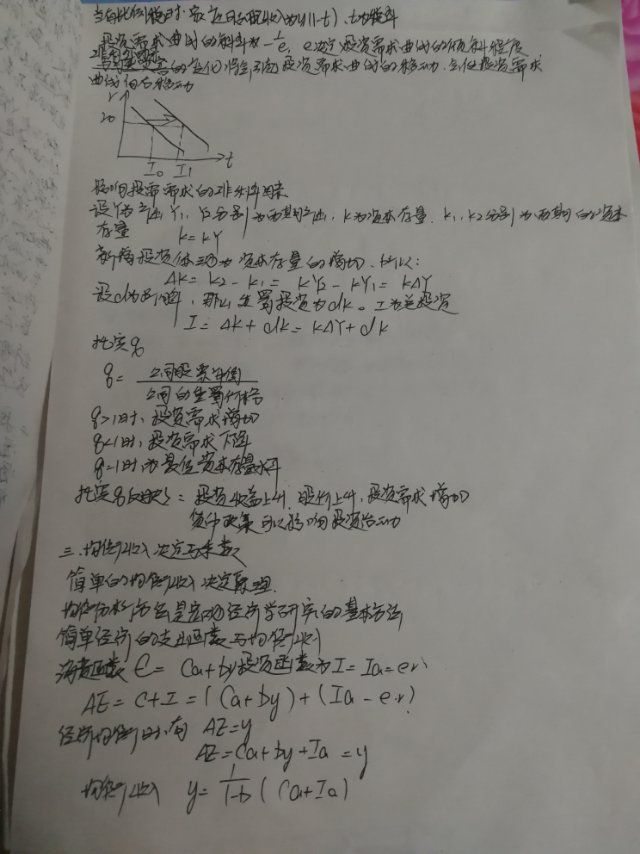 当有比例税时，家庭可支配收入为y(1-t)，t为税率
投资需求曲线的斜率为-1/e，e决定投资需求曲线的倾斜程度
的变化将会引起投资需求曲线的移动，会使投资需求
曲线向右移动
r
r0
I0 I1 t
影响投资需求的非利率因素
设Y为产出，Y1、Y2分别为两期产出，K为资本存量，K1、K2分别为两期的资本
存量 K=kY
新增投资体现为资本存量的增加，
ΔK=K2-K1=kY2-kY1=kΔY
设d为折旧率，那么重置投资为dK。I为总投资
I=ΔK+dK=kΔY+dK
托宾q
q=公司股票市值/公司的重置价格
q>1时，投资需求增加
q<1时，投资需求下降
q=1时，为最佳资本存量水平
托宾q反映：投资收益上升，股价上升，投资需求增加
货币政策可以影响投资活动
三、均衡收入决定与乘数
简单的均衡收入决定原理
均衡分析方法是宏观经济学研究的基本方法
简单经济的支出函数与均衡收入
消费函数C=Ca+by投资函数为I=Ia=er
AE=C+I=(Ca+by)+(Ia-er)
经济均衡时，有AE=y
AE=Ca+by+Ia=y
均衡收入 y=1/1-b(Ca+Ia)